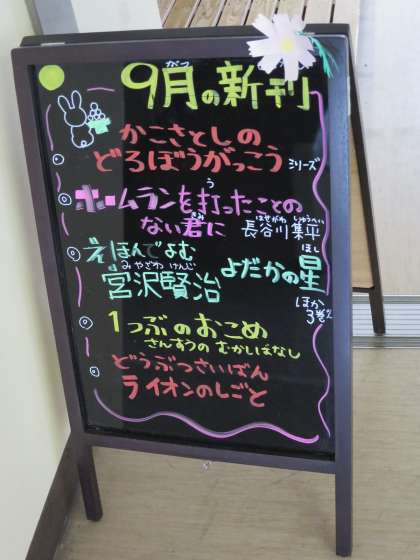 9月の新刊
がつ
かこさとしの
どろぼうがっこう シリーズ
ホームランを打ったことの
う
ない君に 長谷川集平
きみ はせがわ しゅうへい
えほんでよむ
宮沢賢治 よだかの星
みやざわ けんじ ほし
ほか
3巻
1つぶのおこめ
さんすうの むかしばなし
どうぶつさいばん
ライオンのしごと